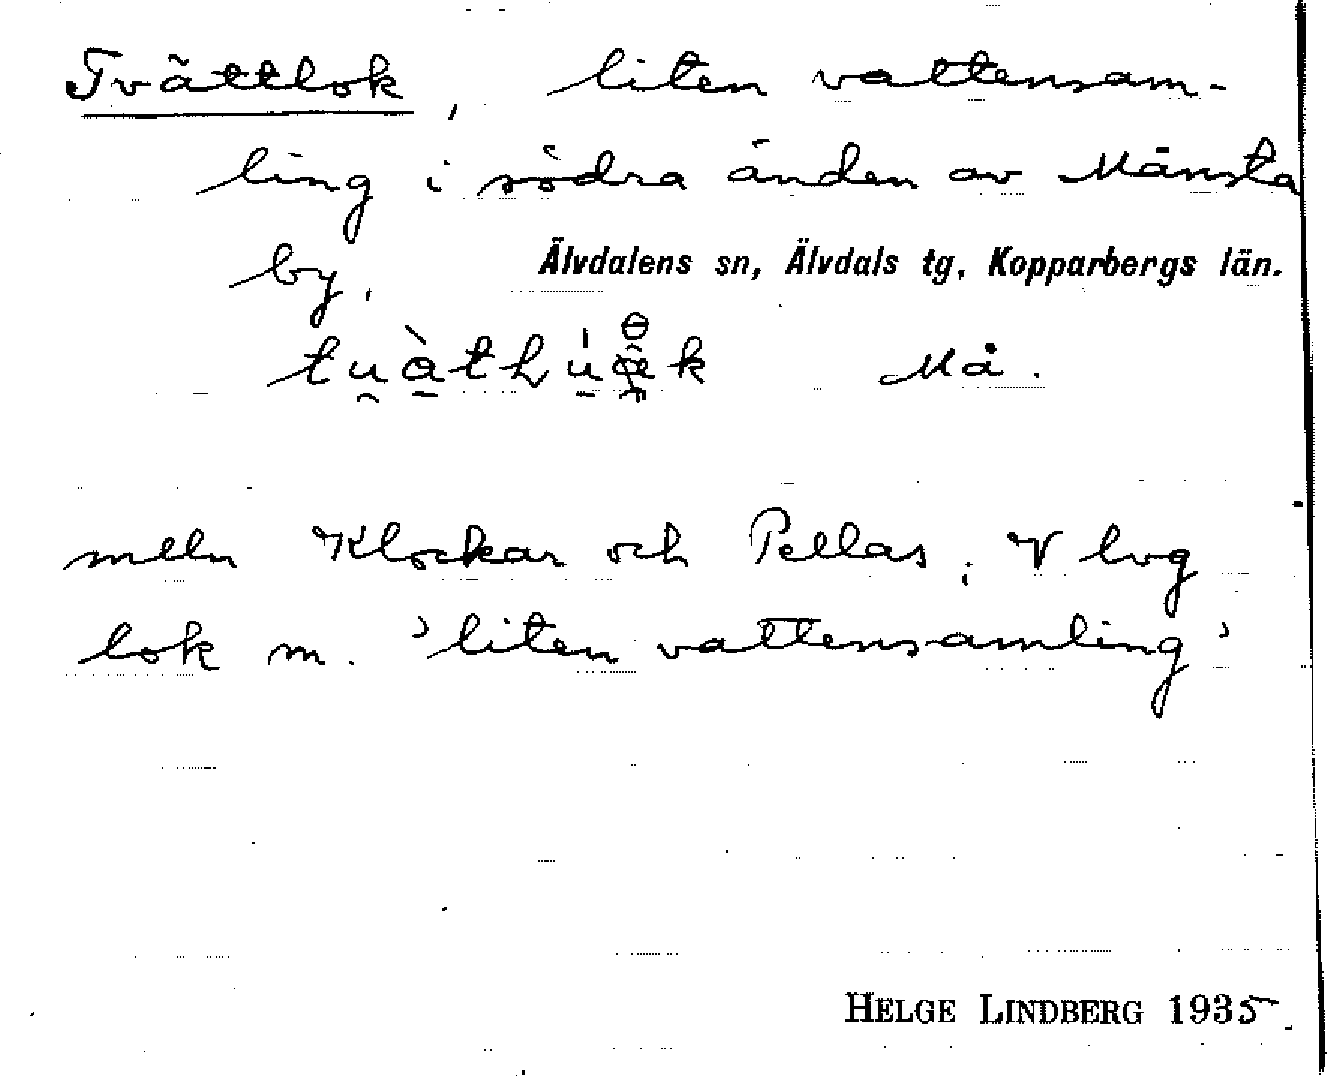 Tvättlok, liten vattensam-
ling i södra änden av Månsta
by. Älvdalens sn, Älvdals tg, Kopparbergs län.
Må.
melln Klockar och Pellas; V hvg
lok m. 'liten vattensamling'
HELGE LINDBERG 1935